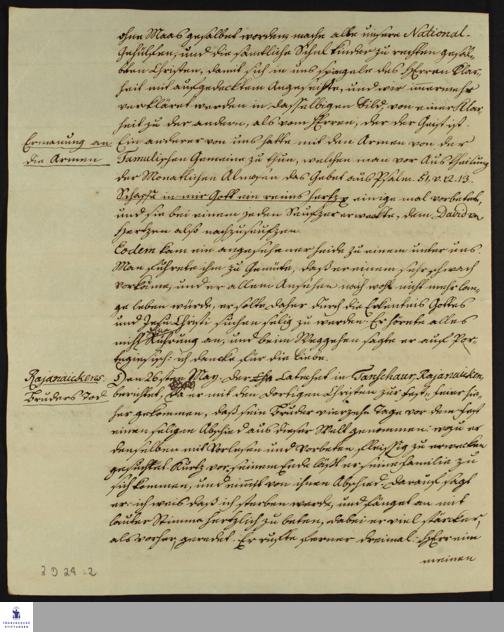 ohne Maas gesalbet worden, mache alle unsere National-
Gehülffen, und die sämtliche Schul Kinder zu rechten gesalb-
ten Christen, damit sich in uns spiegele des HErren Klar-
heit mit aufgedecktem Angesichte, und wir immermehr
verkläret werden in dasselbige Bild von einer Klar-
heit zu der andern, als vom HErren, der der Geist ist.
Ermanung an
die Armen
Ein anderer von uns hatte mit den Armen von der
Tamulischen Gemeine zu thun, welchen man vor Austheilung
der Monatlichen Almosen das Gebet aus Psalm. 51, v. 12.13.
Schaffe in mir Gott ein reines Hertze einige mal vorbetete,
und sie bei einem jeden Seufzer erweckte, dem David von
Hertzen also nachzuseufzen.
Eodem kam ein angesehener Heide zu einem unter uns.
Man führete ihm zu Gemüte, daß er einem sehr schwach
vorkäme, und er allem Ansehen nach wohl nicht mehr lan-
ge leben würde, er solte daher durch die Erkentnis Gottes
und Jesu Christi suchen selig zu werden. Er hörete alles
mit an, und beim Weggehen sagte er auf Por-
tugiesisch: ich dancke für die Liebe.
Rajanaickens
Bruders Tod
Den 26sten May. der Catechet in Tanschaur, Rajanaicken,
berichtet, da er mit den dortigen Christen zur Fest-Feier hie-
her gekommen, daß sein Bruder vierzehn Tage vor dem Fest
einen seligen Abschied aus dieser Welt genommen: wozu er
denselben mit Vorlesen und Vorbeten fleissig zu erwecken
gesuchet. Kurtz vor seinem Ende läßt er seine Familie zu
sich kommen, und nimmt von ihnen Abschied. Darauf sagt
er: ich weis daß ich sterben werde, und fänget an mit
lauter Stimme hertzlich zu beten, dabei er viel stärcker,
als vorher, geredet. Er ruffte ferner dreimal: HErr nim
meinen
2 D 29 : 2
FRANCKESCHE
STIFTUNGEN